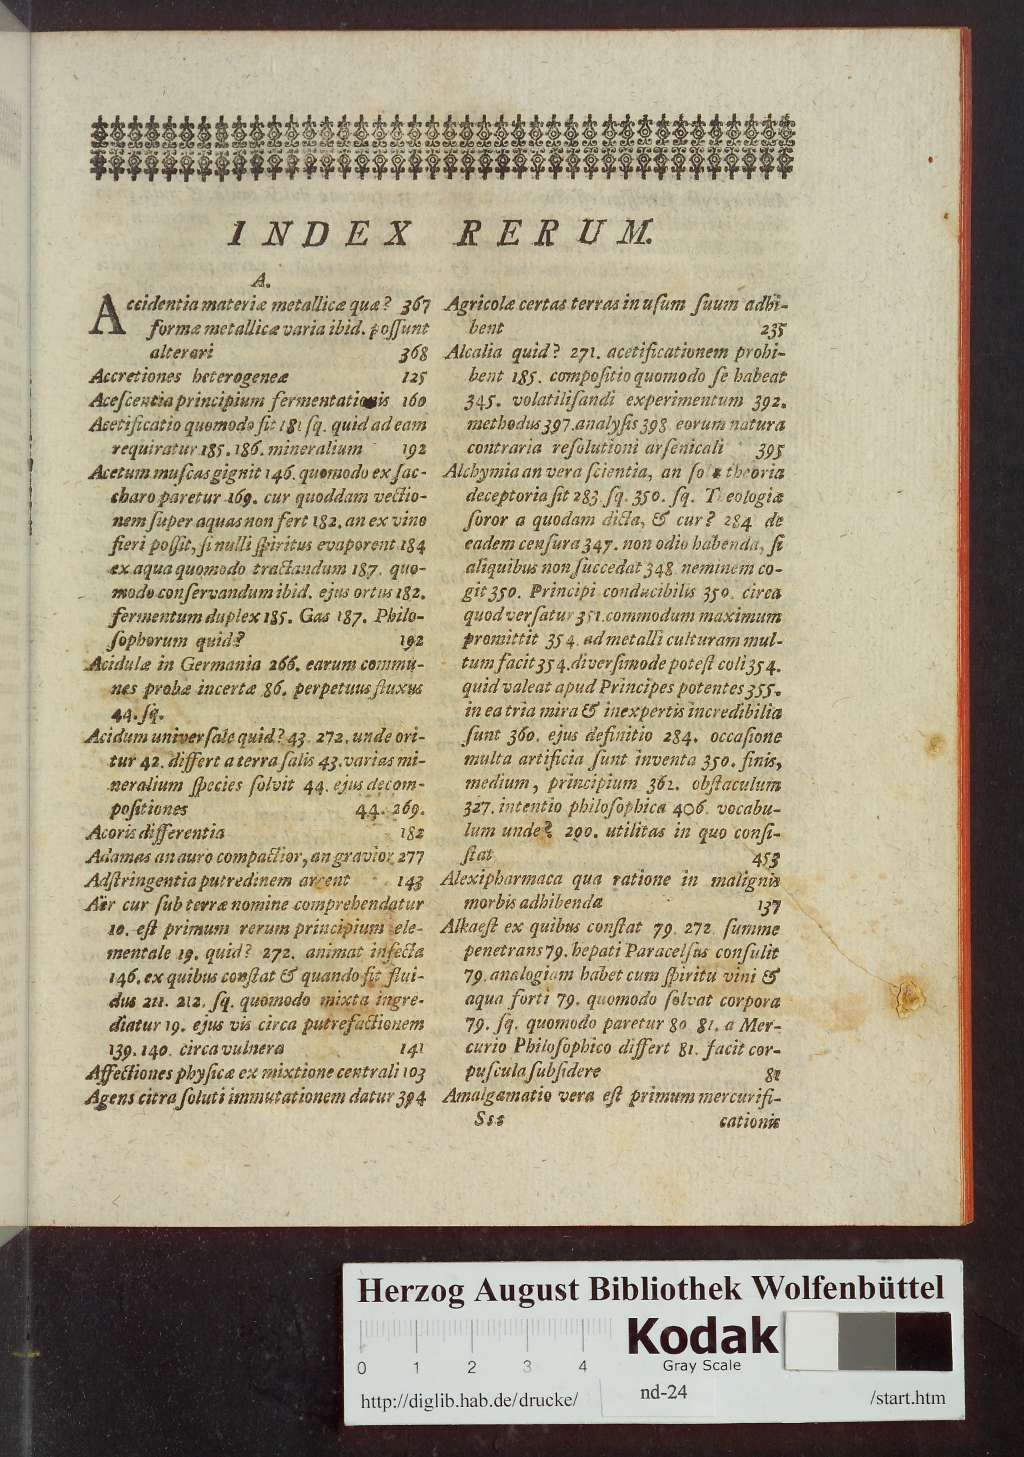 INDEX RERUM.
A.
Accidentia materiæ metallicæ quæ? 367
formæ metallicæ varia ibid. possunt
alterari 368
Accretiones heterogeneæ 125
Acescentia principium fermentationis 160
Acetificatio quomodo fit 181 sq. quid ad eam
requiratur 185. 186. mineralium 192
Acetum muscas gignit 146. quomodo ex sac-
charo paretur 169. cur quoddam vectio-
nem super aquas non fert 182. an ex vino
fieri possit, si nulli spiritus evaporent 184
ex aqua quomodo tractandum 187. quo-
modo conservandum ibid. ejus ortus 182.
fermentum duplex 185. Gas 187. Philo-
sophorum quid? 192
Acidulæ in Germania 266. earum commu-
nes probæ incertæ 86. perpetuus fluxus
44. sq.
Acidum universale quid? 43. 272. unde ori-
tur 42. differt a terra salis 43. varias mi-
neralium species solvit 44. ejus decom-
positiones 44. 269.
Acoris differentia 182
Adamas an auro compactior, an gravior 277
Adstringentia putredinem arcent 143
Aër cur sub terræ nomine comprehendatur
10. est primum rerum principium ele-
mentale 19. quid? 272. animat infecta
146. ex quibus constat & quando sit flui-
dus 211. 212. sq. quomodo mixta ingre-
diatur 19. ejus vis circa putrefactionem
139. 140. circa vulnera 141
Affectiones physicæ ex mixtione centrali 103
Agens citra soluti immutationem datur 394
Agricolæ certas terras in usum suum adhi-
bent 235
Alcalia quid? 271. acetificationem prohi-
bent 185. compositio quomodo se habeat
345. volatilisandi experimentum 392.
methodus 397. analysis 398. eorum natura
contraria resolutioni arsenicali 395
Alchymia an vera scientia, an sola theoria
deceptoria sit 283. sq. 350. sq. Theologiæ
soror a quodam dicta, & cur? 284 de
eadem censura 347. non odio habenda, si
aliquibus non succedat 348. neminem co-
git 350. Principi conducibilis 350. circa
quod versatur 351. commodum maximum
promittit 354. ad metalli culturam mul-
tum facit 354. diversimode potest coli 354.
quid valeat apud Principes potentes 355.
in ea tria mira & inexpertis incredibilia
sunt 360. ejus definitio 284. occasione
multa artificia sunt inventa 350. finis,
medium, principium 362. obstaculum
327. intentio philosophica 406. vocabu-
lum unde? 290. utilitas in quo consi-
stat 453
Alexipharmaca qua ratione in malignis
morbis adhibenda 137
Alkaest ex quibus constat 79. 272. summe
penetrans 79. hepati Paracelsus consulit
79. analogiam habet cum spiritu vini &
aqua forti 79. quomodo solvat corpora
79. sq. quomodo paretur 80. 81. a Mer-
curio Philosophico differt 81. facit cor-
puscula subsidere 81
Amalgamatio vera est primum mercurifi-
Sss cationis
Herzog August Bibliothek Wolfenbüttel
Kodak
Gray Scale
0 1 2 3 4
http://diglib.hab.de/drucke/ nd-24 /start.htm